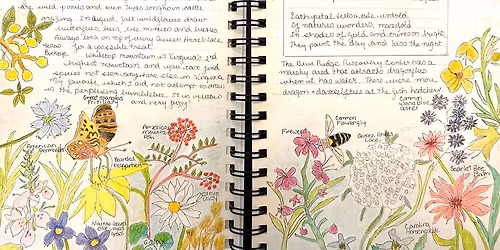 the wild ponies and even Texas longhorn cattle
grazing. In August, fall wildflowers draw
butterflies, bees,
Hawks on top of every Queen Anne's Lace,
for a possible treat!
Yellow
Buckeye
Whitetop mountain is Virginia's 2nd
highest mountain and you can find
species not seen anywhere else in Virginia
my favorite, which I did not attempt to draw
is the bumblebee. It is yellow
and very fuzzy!
Great Spangled
Fritillary
American
Bearded
Beggarticks
American
Mountain
Ash
Narrow-leaved
blue eyed
grass
Galax
Earth petal
of natures wonders, manifold
In shades of gold, and crimson bright,
They paint the day, and kiss the night
The Blue Ridge Discovery Center has a
marshy area that attracts dragonflies
when it has water. There were more
dragon + damselflies at the fish hatchery
Fireweed
Common
Hoverfly
Queen Anne's
Lace
Common
Wood Blue
aster
Scarlet Bee
Balm
Carolina
Horsenettle